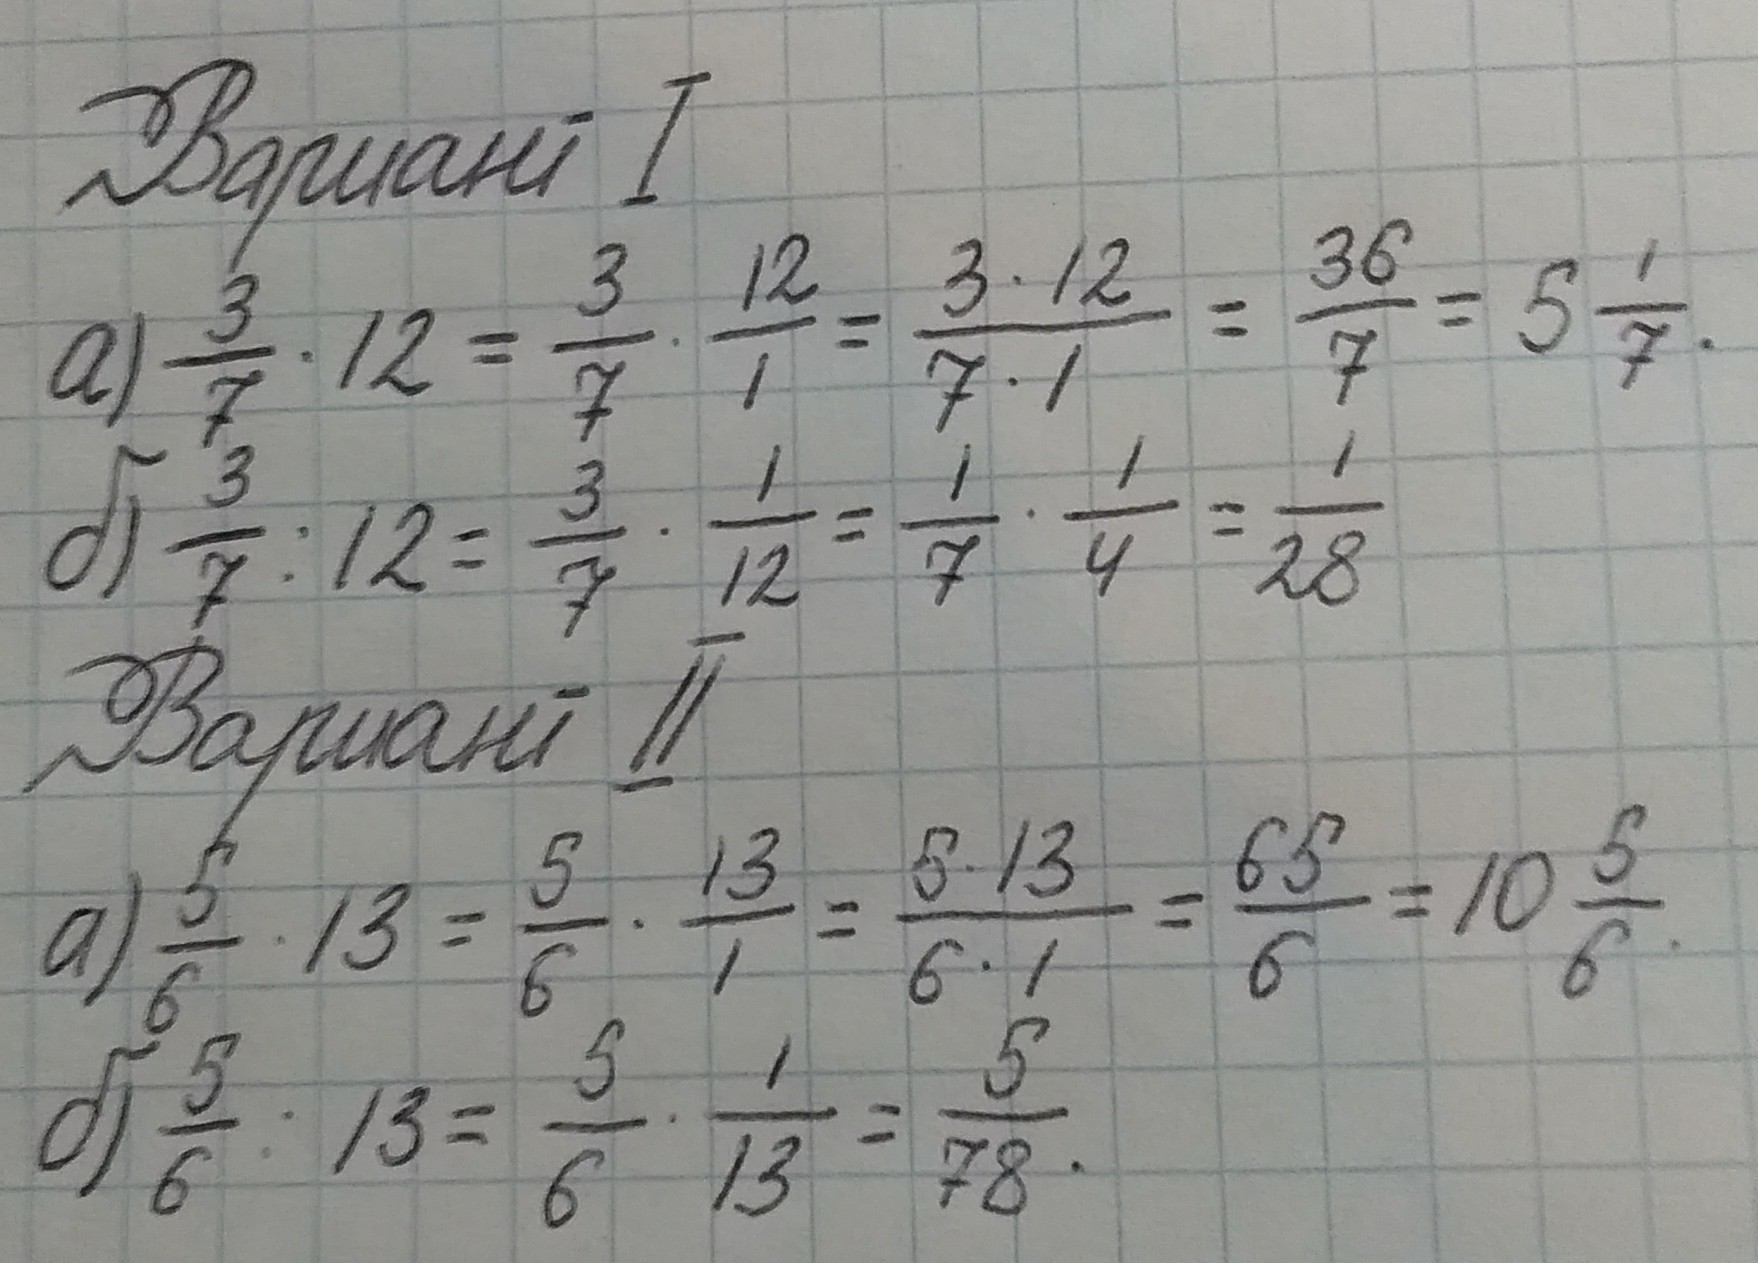 Вариант I
а) 3/7 · 12 = 3/7 · 12/1 = 3 · 12/7 · 1 = 36/7 = 5 1/7.
б) 3/7 : 12 = 3/7 · 1/12 = 1/7 · 1/4 = 1/28
Вариант II
а) 5/6 · 13 = 5/6 · 13/1 = 5 · 13/6 · 1 = 65/6 = 10 5/6.
б) 5/6 : 13 = 5/6 · 1/13 = 5/78.